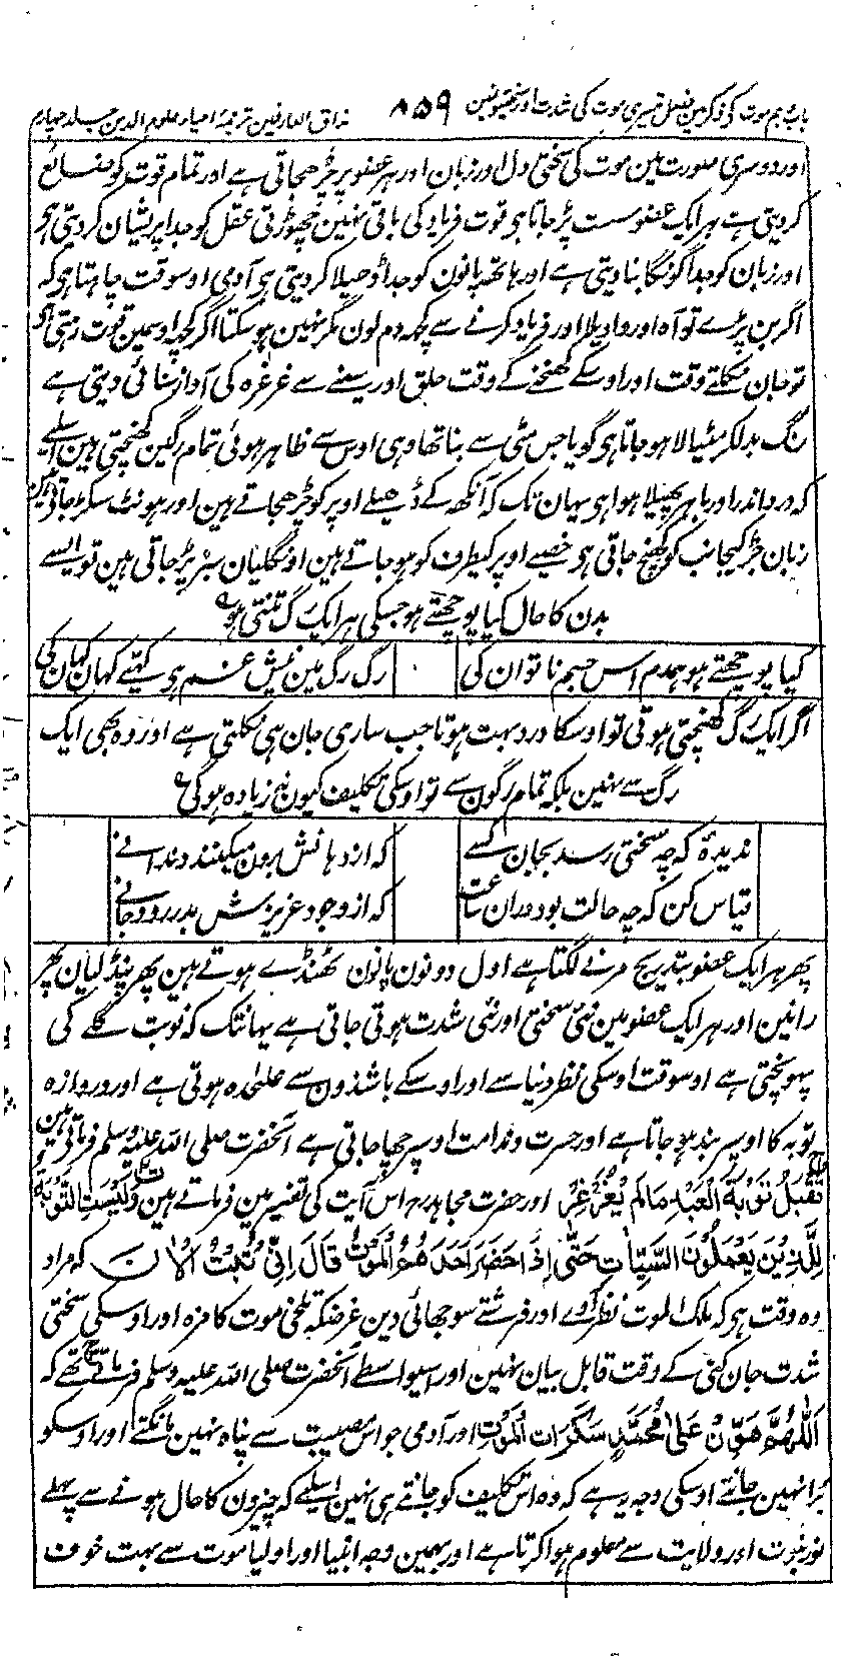 باب دہم موت کی ذکر مین فصل تیسری موت کی شدت اور سختیونمین ۸۵۹ مذاق العارفین ترجمۂ احیاء علوم الدین جلد چہارم
اور دوسری صورت مین موت کی سختی دل اور زبان اور ہر عضو پر چڑھ جاتی ہے اور تمام قوت کو ضائع
کر دیتی ہے ہر ایک عضو سست پڑ جاتا ہی قوت فریاد کی باقی نہین چھوڑتی عقل کو جدا پریشان کر دیتی ہی
اور زبان کو جدا گونگا بنا دیتی ہے اور ہاتھ پانون کو جدا ڈھیلا کر دیتی ہی آدمی اوسوقت چاہتا ہی کہ
اگر بن پڑے تو آہ اور واویلا اور فریاد کرنے سے کچھ دم لون مگر نہین ہو سکتا اگر کچھ اوسمین قوت رہتی ہی
تو جان نکلتے وقت اور اوسکے کھنچنے کے وقت حلق اور سینے سے غرغرہ کی آواز سنائی دیتی ہے
رنگ بدلکر مٹیالا ہو جاتا ہی گویا جس مٹی سے بنا تھا وہی اوس سے ظاہر ہوئی تمام رگین کھنچتی ہین اسلیے
کہ درد اندر اور باہر پھیلا ہوا ہی یہان تک کہ آنکھ کے ڈھیلے اوپر کو چڑھ جاتے ہین اور ہونٹ سکڑ جاتے ہین
زبان جڑ کیجانب کو کھنچ جاتی ہی خصیے اوپر کیطرف کو ہو جاتے ہین اونگلیان سبز پڑ جاتی ہین تو ایسے
بدن کا حال کیا پوچھتے ہو جسکی ہر ایک رگ تنتی ہو
کیا پوچھتے ہو ہمدم اس جسم ناتوان کی رگ رگ مین نیش غم ہی کہیے کہان کہان کی
اگر ایک رگ کھنچتی ہوتی تو اوسکا درد بہت ہوتا جب ساری جان ہی نکلتی ہے اور وہ بھی ایک
رگ سے نہین بلکہ تمام رگون سے تو اوسکی تکلیف کیون نہ زیادہ ہوگی
ندیدۂ کہ چہ سختی رسد بجان کسے کہ از دہانش برون میکنند دندانے
قیاس کن کہ چہ حالت بود دران ساعت کہ از وجود عزیزش بدر رود جانے
پھر ہر ایک عضو بتدریج مرنے لگتا ہے اول دونون پانون ٹھنڈے ہوتے ہین پھر پنڈلیان پھر
رانین اور ہر ایک عضو مین نئی سختی اور نئی شدت ہوتی جاتی ہے یہانتک کہ نوبت گلے کی
پہونچتی ہے اوسوقت اوسکی نظر دنیا سے اور اوسکے باشندون سے علحدہ ہوتی ہے اور دروازہ
توبہ کا اوسپر بند ہو جاتا ہے اور حسرت و ندامت اوسپر چھا جاتی ہے آنحضرت صلی اللہ علیہ وسلم فرماتے ہین
تُقْبَلُ تَوْبَةُ الْعَبْدِ مَا لَمْ يُغَرْغِرْ اور حضرت مجاہد رہ اس آیت کی تفسیر مین فرماتے ہین وَلَيْسَتِ التَّوْبَةُ
لِلَّذِيْنَ يَعْمَلُوْنَ السَّيِّاٰتِ حَتّٰى اِذَا حَضَرَ اَحَدَهُمُ الْمَوْتُ قَالَ اِنِّيْ تُبْتُ الْاٰنَ کہ مراد
وہ وقت ہی کہ ملک الموت نظر آوے اور فرشتے سوجھائی دین غرضکہ تلخی موت کا مزہ اور اوسکی سختی
شدت جان کنی کے وقت قابل بیان نہین اور اسیواسطے آنحضرت صلی اللہ علیہ وسلم فرماتے تھے کہ
اَللّٰهُمَّ هَوِّنْ عَلٰى مُحَمَّدٍ سَكَرَاتِ الْمَوْتِ اور آدمی جو اس مصیبت سے پناہ نہین مانگتے اور اوسکو
برا نہین جانتے اوسکی وجہ یہ ہے کہ وہ اس تکلیف کو جانتے ہی نہین اسلیے کہ چیزون کا حال ہونے سے پہلے
نور نبوت اور ولایت سے معلوم ہوا کرتا ہے اور بہمین وجہ انبیا اور اولیا موت سے بہت خوف